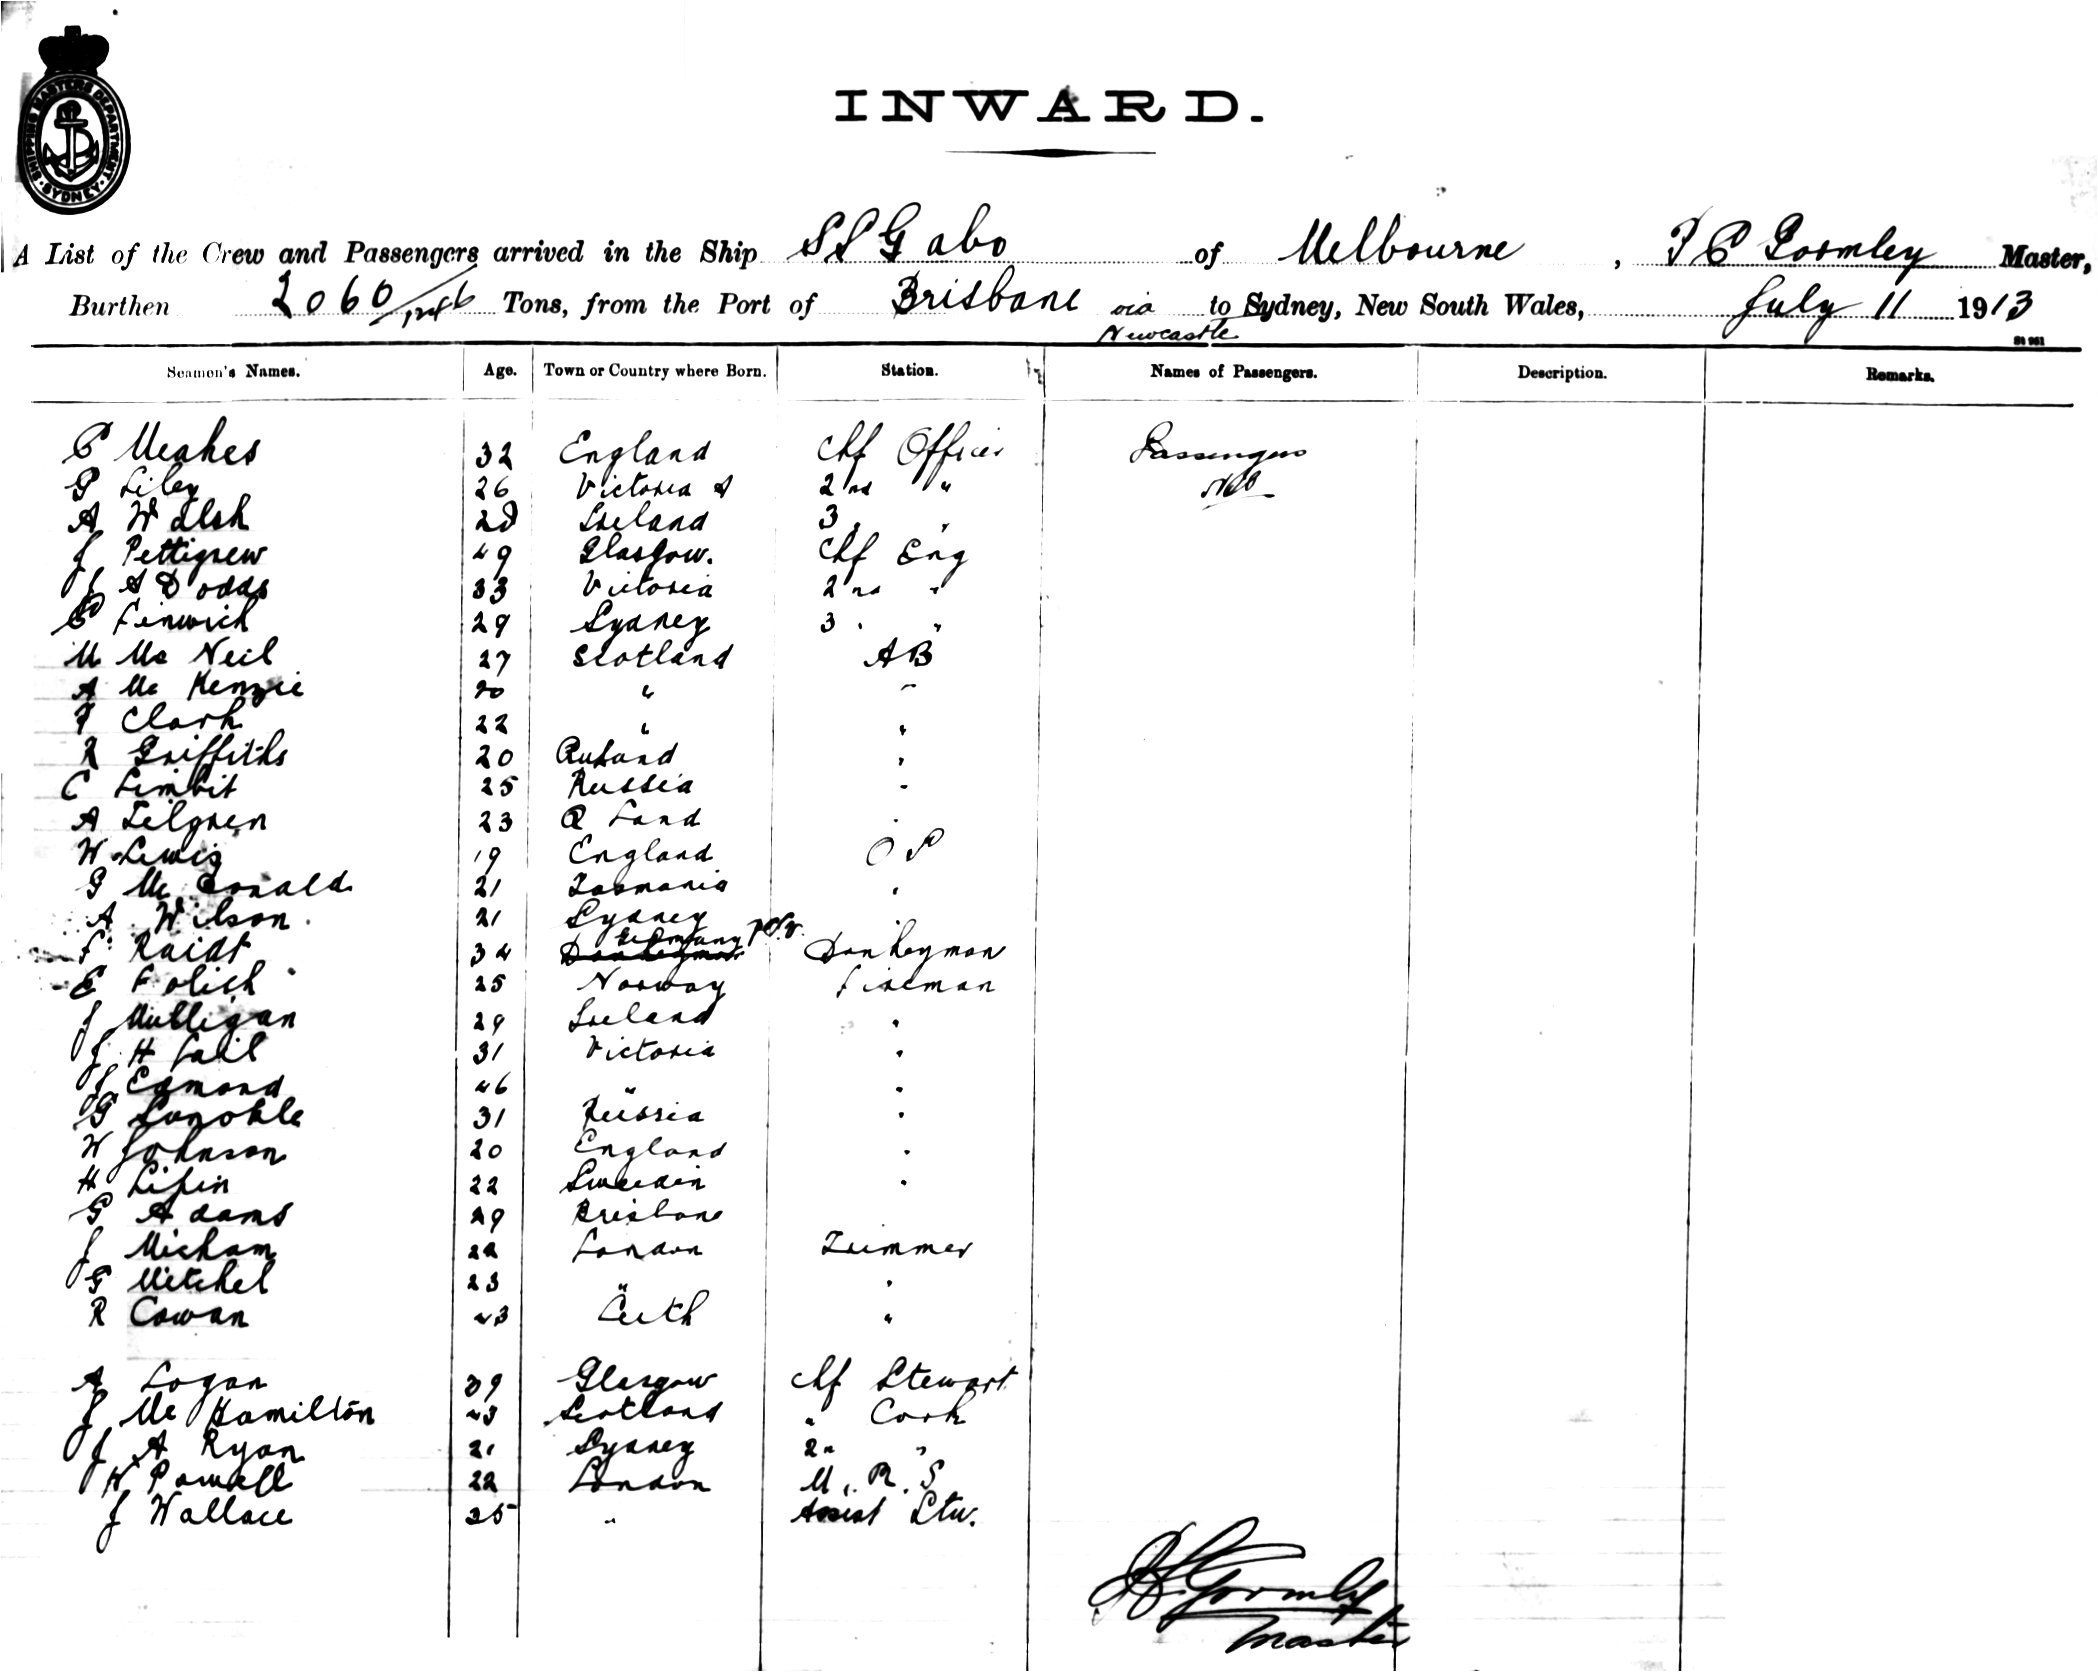 SHIPPING MASTERS DEPARTMENT SYDNEY
INWARD.
A List of the Crew and Passengers arrived in the Ship SS Gabo of Melbourne, Gormley Master,
Burthen 2060 Tons, from the Port of Brisbane via Newcastle to Sydney, New South Wales, July 11 1913
Seamen's Names. Age. Town or Country where Born. Station. Names of Passengers. Description. Remarks.
Meakes 32 England Chf Officer Passengers
G Liley 26 Victoria 2nd " Nil
A Walsh Ireland 3 "
J Pettigrew 49 Glasgow. Chf Eng
J A Dodds 33 Victoria 2nd "
Finwick 29 Sydney 3 "
M Mc Neil 27 Scotland AB
A Mc Kenzie 20 " "
F Clark 22 " "
R Griffiths 20 "
C Limbit 25 Russia "
A 23 Q Land "
W Lewis 19 England OS
G Mc Donald 21 Tasmania "
A Wilson 21 Sydney "
F Raidt 34 Germany Donkeyman
E Folich 25 Norway Fireman
J Mulligan 29 Ireland "
J H 31 Victoria "
J Edmond 46 " "
G 31 Russia "
W Johnson 20 England "
H 22 Sweden "
G Adams 29 Brisbane
J Micham 22 London Trimmer
G Mitchel 23 " "
R Cowan 43 Leith "
A Logan 39 Glasgow Chf Stewart
J Mc Hamilton 43 Scotland " Cook
J A Ryan 21 Sydney 2n "
W Powell 22 London M.R.S
J Wallace 25 " Assist Stw.
Gormley
Master